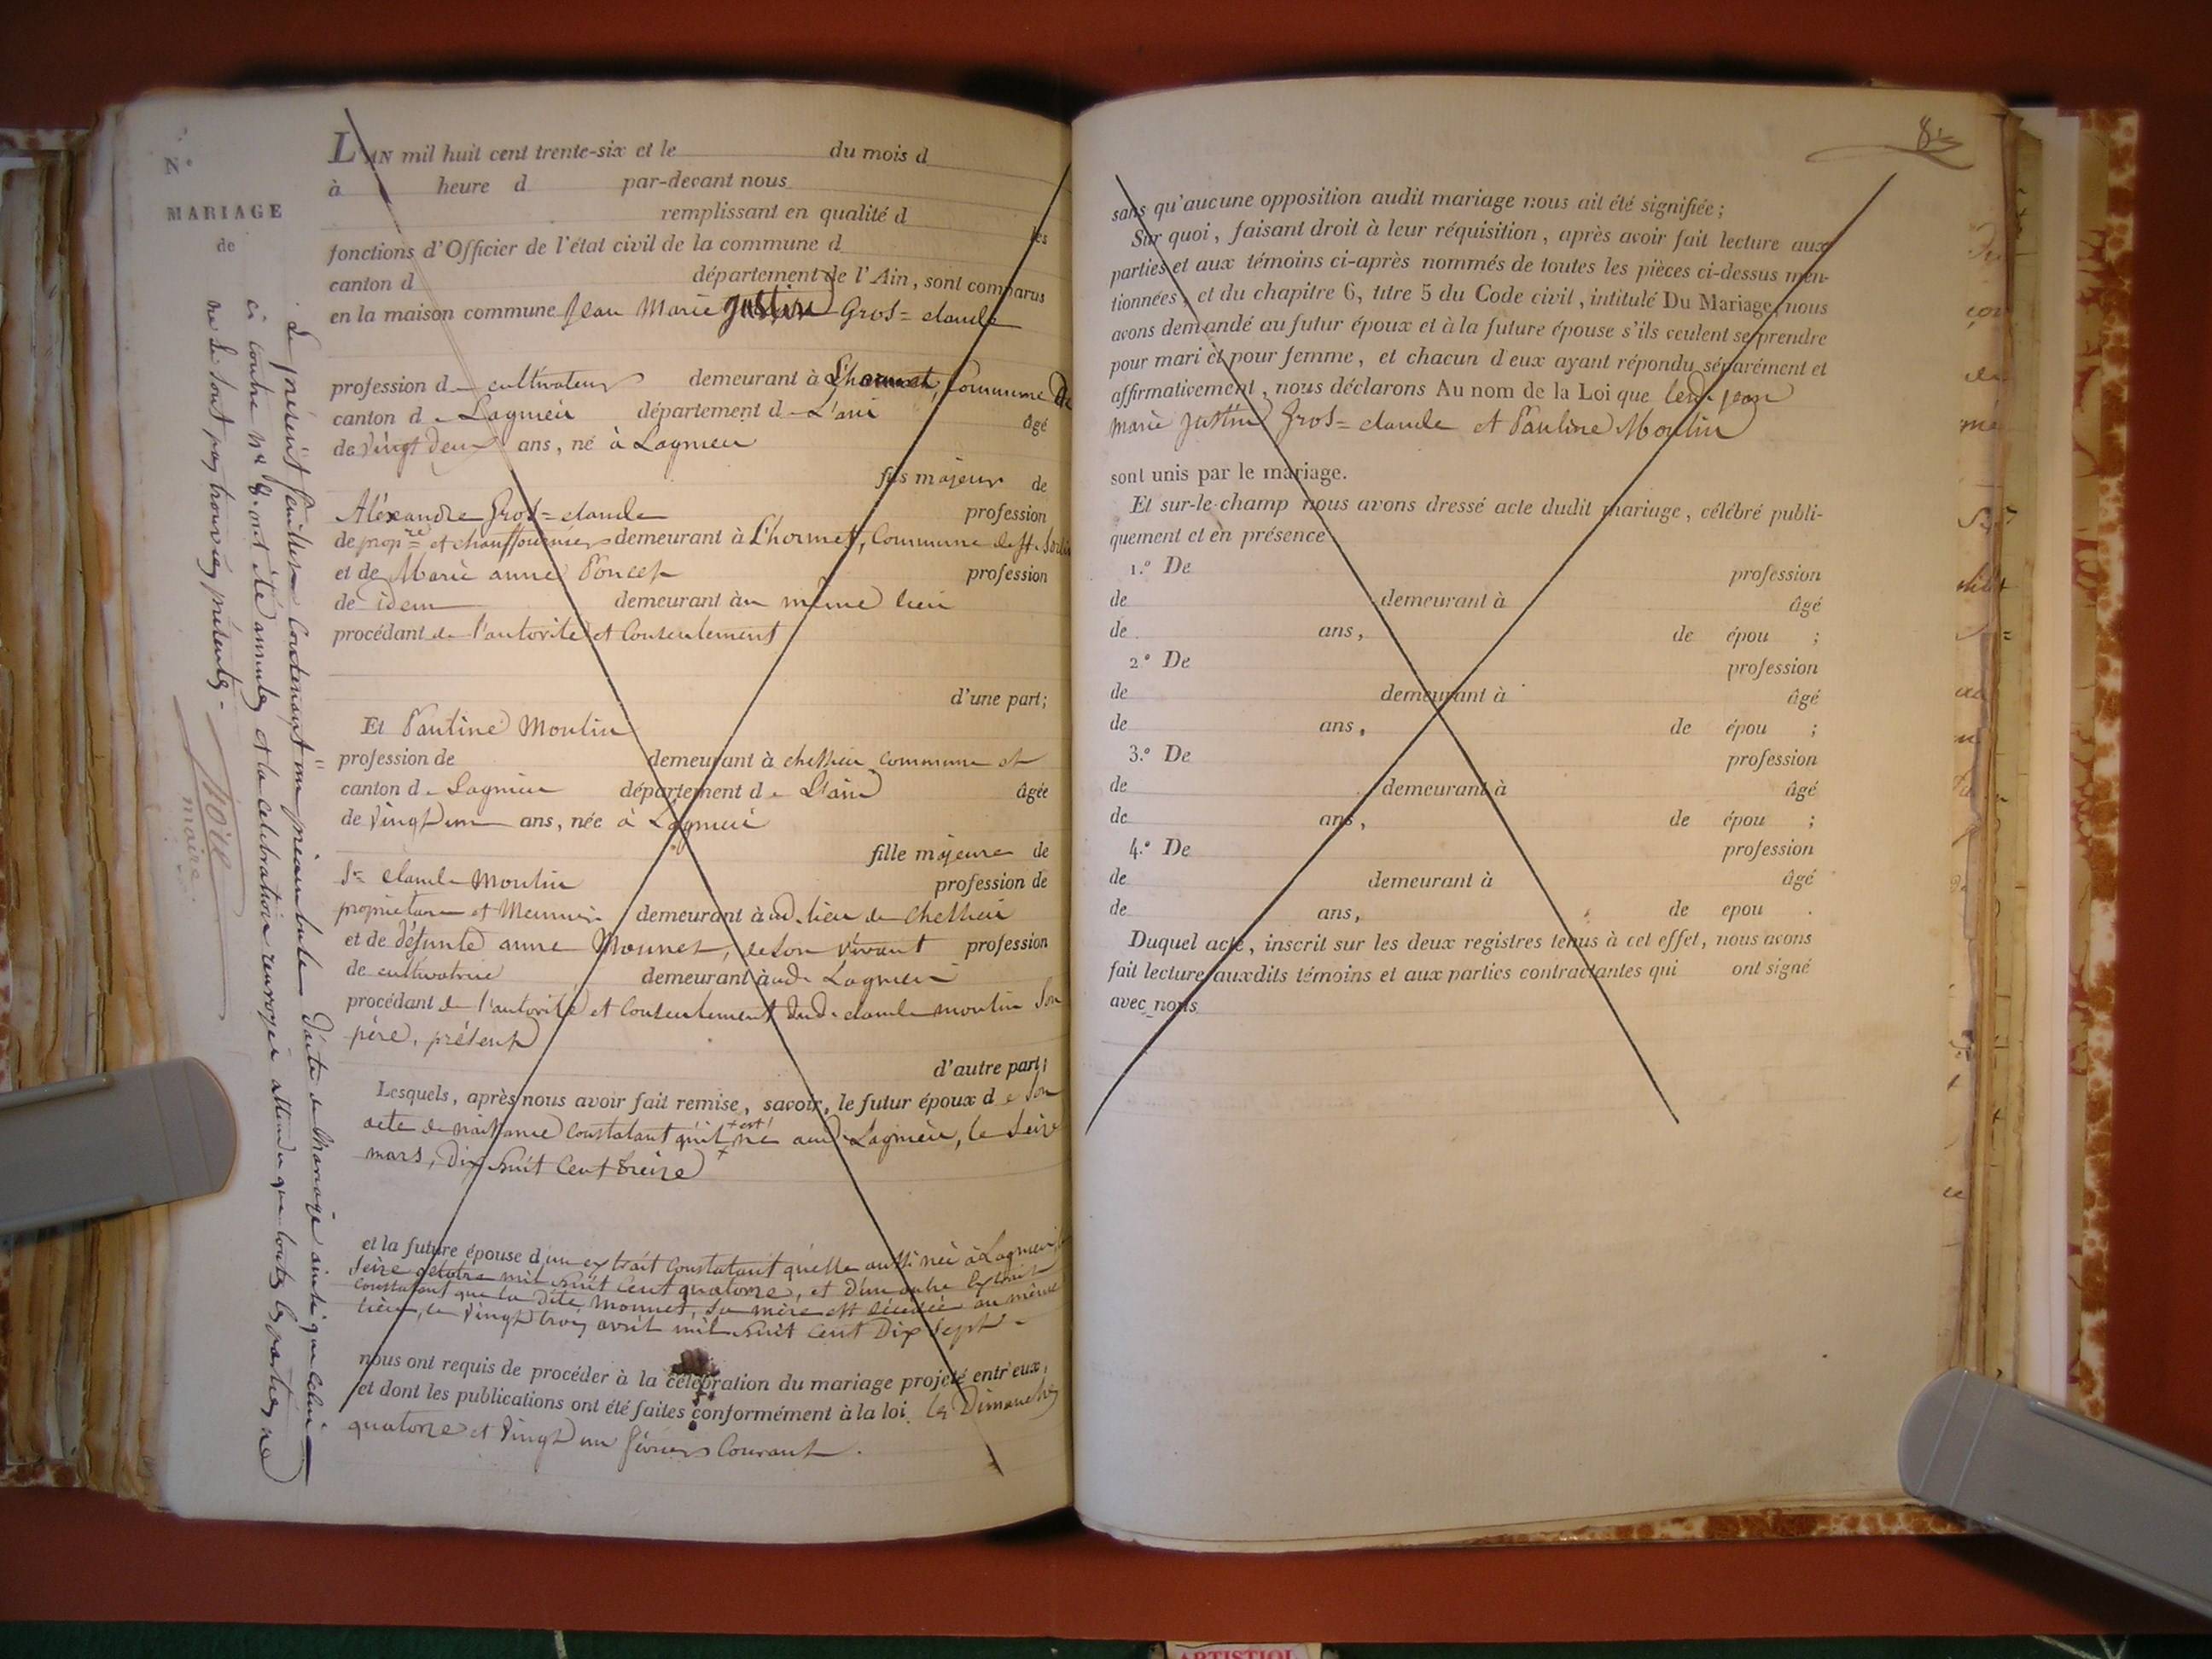 N°
MARIAGE
de
L'AN mil huit cent trente-six et le du mois d
à heure d par-devant nous
remplissant en qualité d les
fonctions d'Officier de l'état civil de la commune d
canton d département de l'Ain, sont comparus
en la maison commune Jean Marie Justin Gros=claude
profession de cultivateur demeurant à L'hormet, Commune de
canton de Lagnieu département de L'ain âgé
de Vingt deux ans, né à Lagnieu
fils majeur de
Aléxandre Gros=claude profession
de propre et chauffournier demeurant à L'hormet, Commune de St. Sorlin
et de Marie anne Poncet profession
de idem demeurant au même lieu
procédant de l'autorité et Consentement
d'une part;
Et Pauline Moulin
profession de demeurant à chessieu commune et
canton de Lagnieu département de L'ain âgée
de Vingt un ans, née à Lagnieu
fille majeure de
Sr claude Moulin profession de
propriétaire et Meunier demeurant à ud. lieu de Chessieu
et de défunte anne Monnet, de son vivant profession
de cultivatrice demeurant à ud. Lagnieu
procédant de l'autorité et Consentement dud. claude moulin son
père, présent
d'autre part;
Lesquels, après nous avoir fait remise, savoir, le futur époux de son
acte de naissance Constatant qu'il est né aud. Lagnieu, le seize
mars, dix huit Cent treize
et la future épouse d'un extrait Constatant qu'elle aussi née à Lagnieu, le
seize octobre mil huit Cent quatorze, et d'un autre Extrait
Constatant que la dite Monnet, sa mère est décédée au même
lieu, le Vingt trois avril mil huit Cent Dix Sept
nous ont requis de procéder à la célébration du mariage projeté entr'eux,
et dont les publications ont été faites conformément à la loi les Dimanches
quatorze et Vingt un février Courant.
Le présent feuillet Contenant un préambule d'acte de Mariage ainsi que Celui
ci contre N° 8. ont été annulés et la célébration renvoyée attendu que toutes les parties ne
ne se sont pas trouvées présentes.
maire
8
sans qu'aucune opposition audit mariage nous ait été signifiée;
Sur quoi, faisant droit à leur réquisition, après avoir fait lecture aux
parties et aux témoins ci-après nommés de toutes les pièces ci-dessus men-
tionnées, et du chapitre 6, titre 5 du Code civil, intitulé Du Mariage, nous
avons demandé au futur époux et à la future épouse s'ils veulent se prendre
pour mari et pour femme, et chacun d'eux ayant répondu séparément et
affirmativement, nous déclarons Au nom de la Loi que led. jean
marie Justin Gros=claude et Pauline Moulin
sont unis par le mariage.
Et sur-le-champ nous avons dressé acte dudit mariage, célébré publi-
quement et en présence
1.° De profession
de demeurant à âgé
de ans, de épou ;
2.° De profession
de demeurant à âgé
de ans, de épou ;
3.° De profession
de demeurant à âgé
de ans, de épou ;
4.° De profession
de demeurant à âgé
de ans, de epou .
Duquel acte, inscrit sur les deux registres tenus à cet effet, nous avons
fait lecture auxdits témoins et aux parties contractantes qui ont signé
avec nous